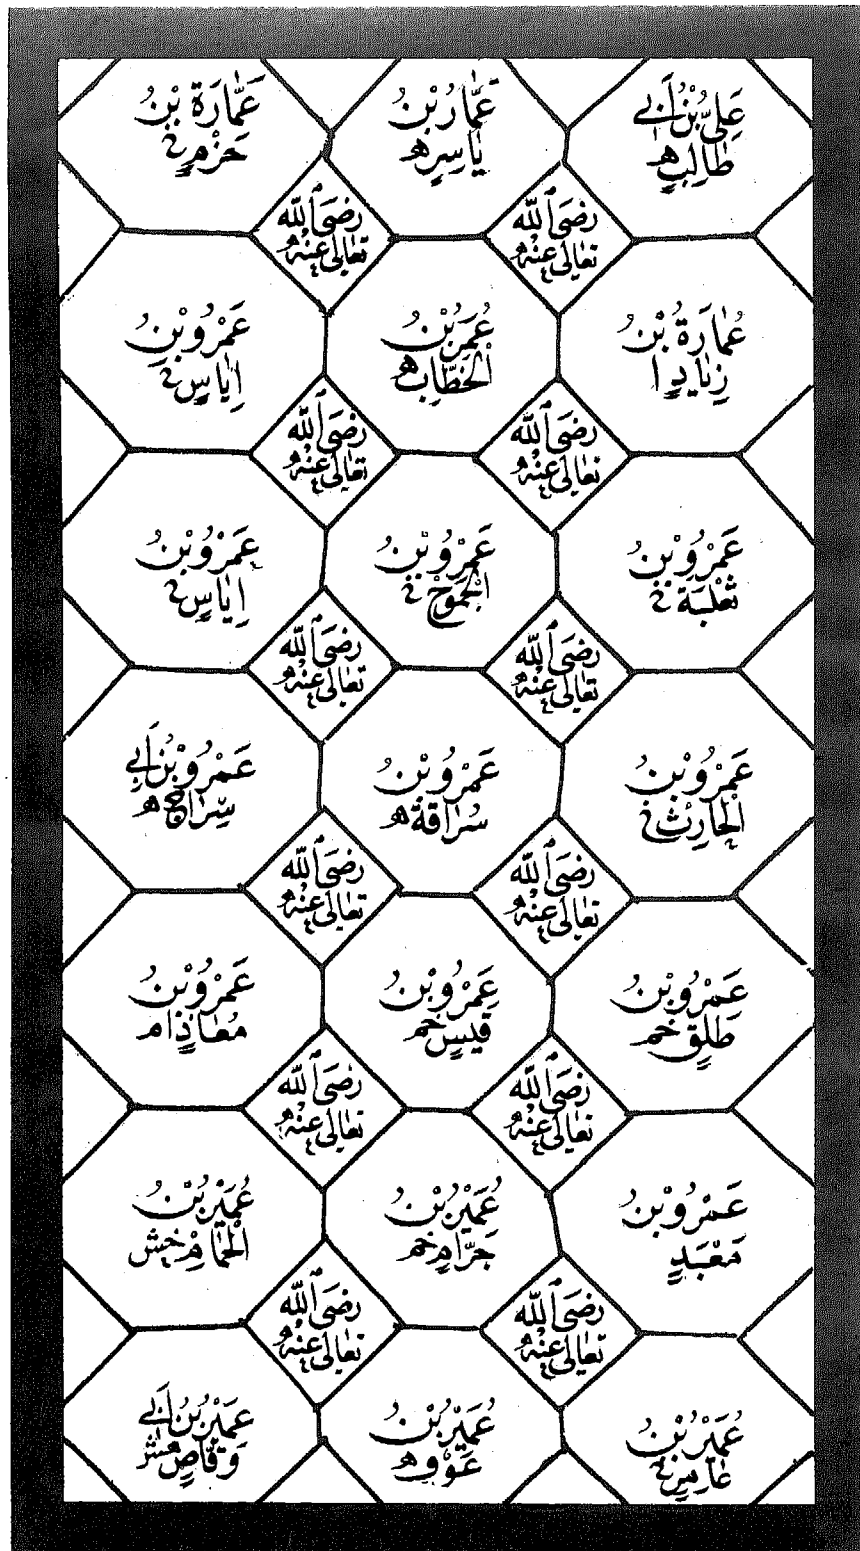 عَلِيُّ بْنُ أَبِي
طَالِبٍ ھ
عَمَّارُ بْنُ
يَاسِرٍ ھ
عَمَّارَةُ بْنُ
حَزْمٍ خ
رَضِيَ ٱللّٰه
تَعَالٰى عَنْهُ
رَضِيَ ٱللّٰه
تَعَالٰى عَنْهُ
عُمَارَةُ بْنُ
زِيَادٍ ا
عُمَرُ بْنُ
الْخَطَّابِ ھ
عَمْرُو بْنِ
اِيَاسٍ خ
رَضِيَ ٱللّٰه
تَعَالٰى عَنْهُ
رَضِيَ ٱللّٰه
تَعَالٰى عَنْهُ
عَمْرُو بْنُ
ثَعْلَبَةَ خ
عَمْرُو بْنُ
الْجَمُوْحِ خ
عَمْرُو بْنُ
اِيَاسٍ خ
رَضِيَ ٱللّٰه
تَعَالٰى عَنْهُ
رَضِيَ ٱللّٰه
تَعَالٰى عَنْهُ
عَمْرُو بْنُ
الْحَارِثِ خ
عَمْرُو بْنُ
سُرَاقَةَ ھ
عَمْرُو بْنُ أَبِي
سِرَاحٍ ھ
رَضِيَ ٱللّٰه
تَعَالٰى عَنْهُ
رَضِيَ ٱللّٰه
تَعَالٰى عَنْهُ
عَمْرُو بْنُ
طَلِقٍ خم
عَمْرُو بْنُ
قَيْسٍ خم
عَمْرُو بْنُ
مُعَاذٍ ام
رَضِيَ ٱللّٰه
تَعَالٰى عَنْهُ
رَضِيَ ٱللّٰه
تَعَالٰى عَنْهُ
عَمْرُو بْنُ
مَعْبَدٍ
عُمَيْرُ بْنُ
حَرَّامٍ خم
عُمَيْرُ بْنُ
الْحُمَامْ خش
رَضِيَ ٱللّٰه
تَعَالٰى عَنْهُ
رَضِيَ ٱللّٰه
تَعَالٰى عَنْهُ
عُمَيْرُ بْنُ
عَامِرٍ خ
عُمَيْرُ بْنُ
عَوْفٍ ھ
عُمَيْرُ بْنُ أَبِي
وَقَّاصٍ